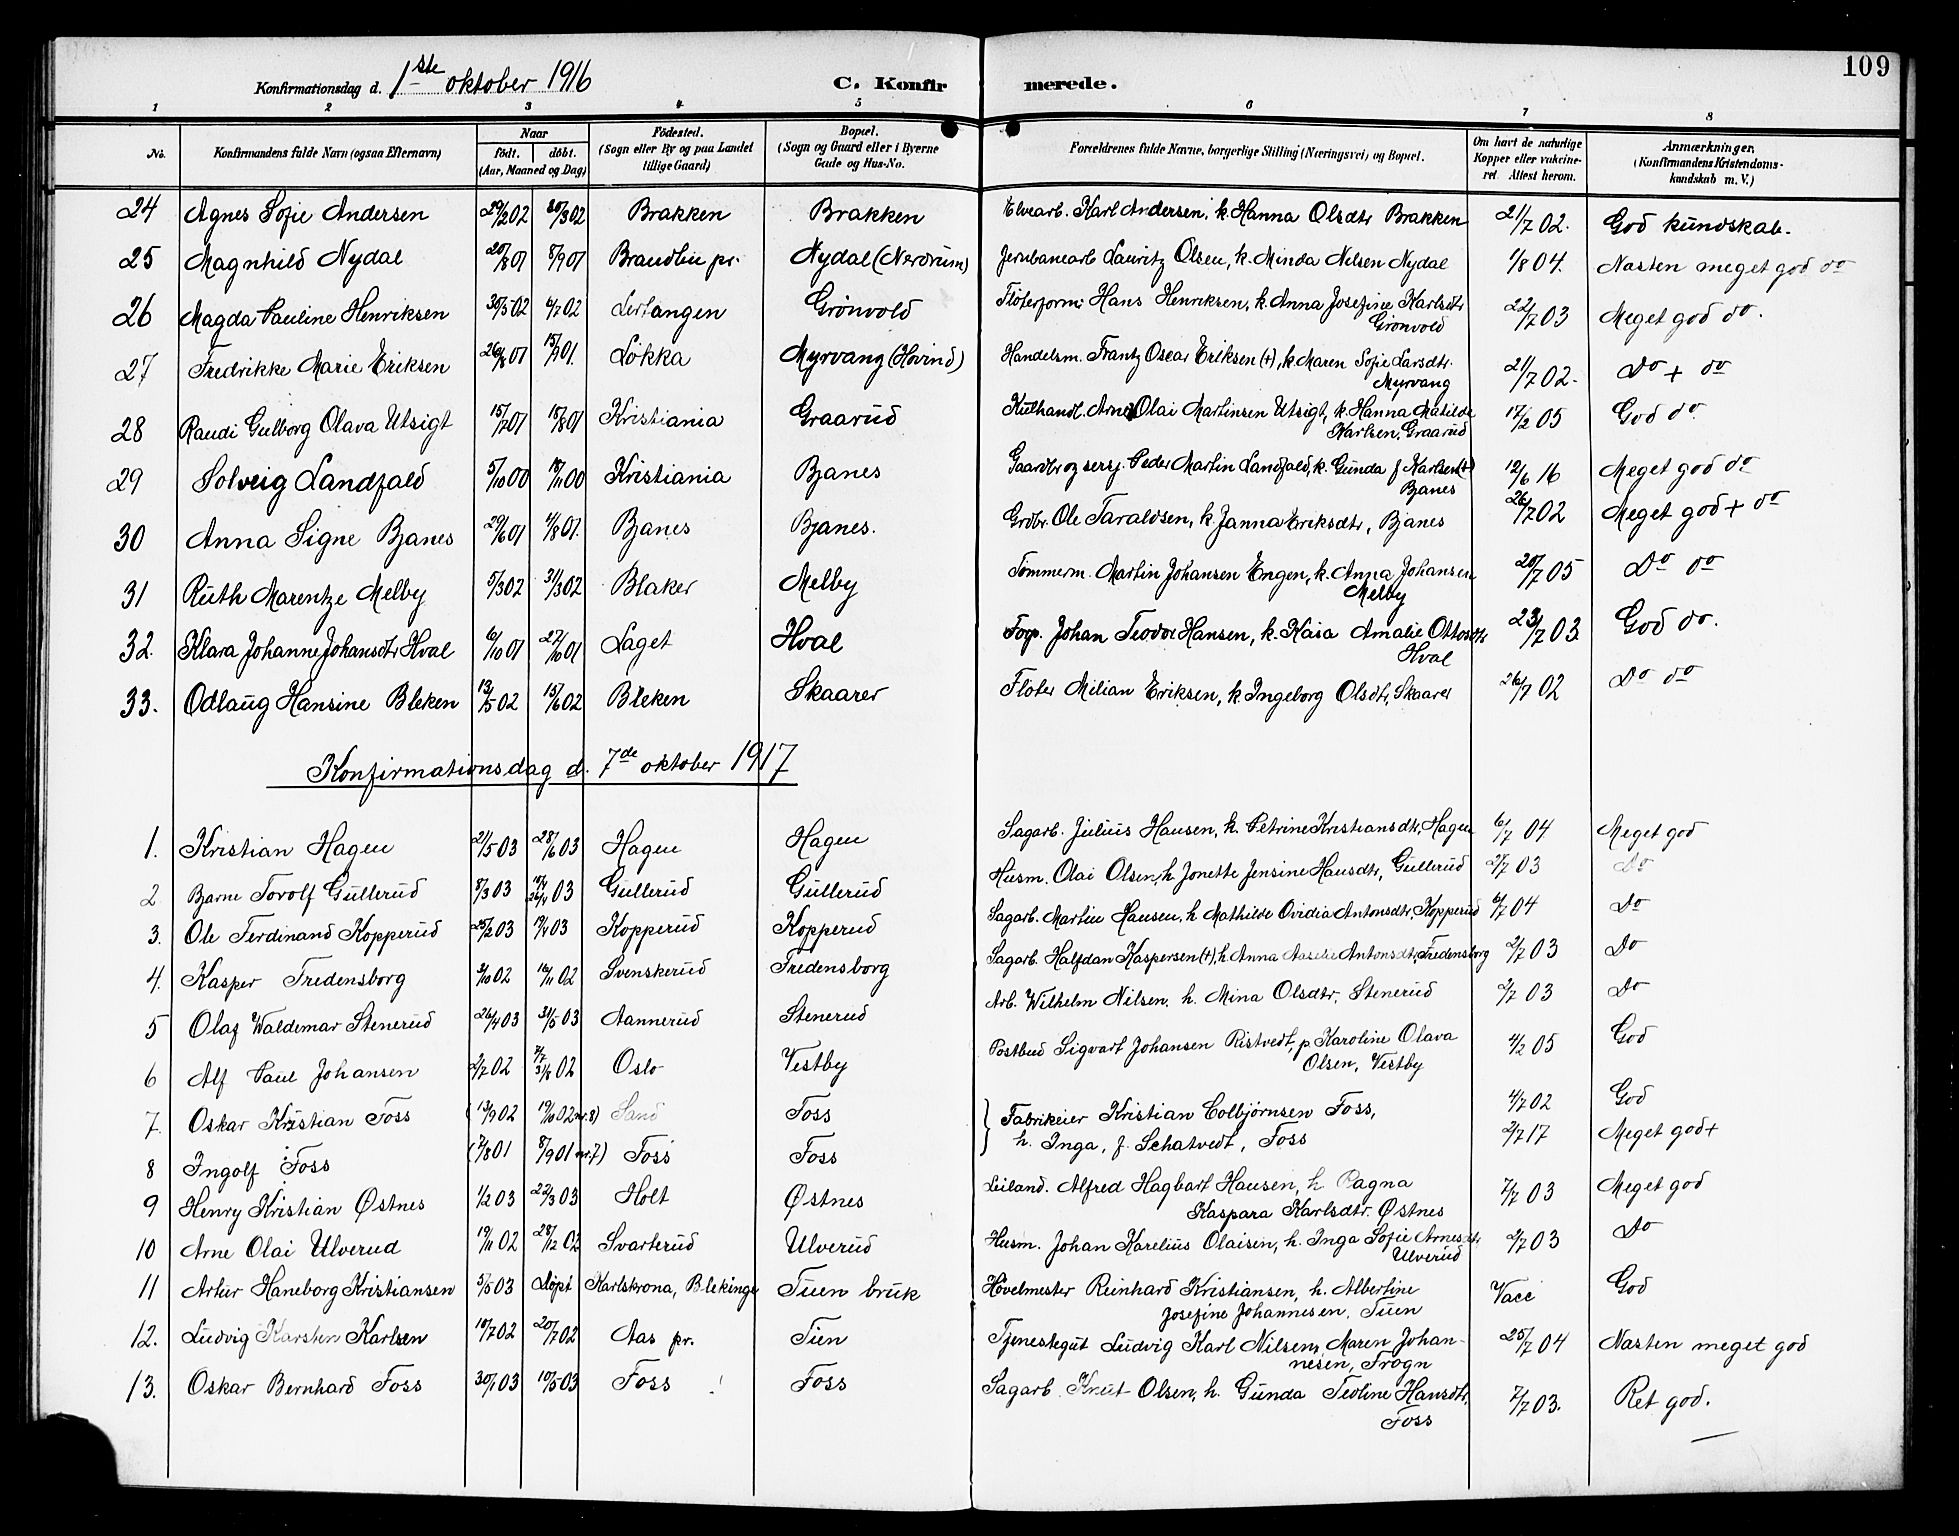 109
Konfirmationsdag d. 1ste oktober 1916 C. Konfirmerede.
1 2 3 4 5 6 7 8
No. Konfirmandens fulde Navn (ogsaa Efternavn) Naar født. døbt. (Aar, Maaned og Dag) Födested. (Sogn eller By og paa Landet tillige Gaard) Bopæl. (Sogn og Gaard eller i Byerne Gade og Hus-No. Forældrenes fulde Navne, borgerlige Stilling (Næringsvei) og Bopæl. Om havt de naturlige Kopper eller vakcineret. Attest herom. Anmærkninger, (Konfirmandens Kristendomskundskab m. V.)
24 Agnes Sofie Andersen 29/2 02 30/3 02 Brakken Brakken Elvearb. Karl Andersen, k. Hanna Olsdtr Brakken 21/7 02. God kundskab.
25 Magnhild Nydal 20/8 01 8/9 01 Brandbu pr. Nydal (Nerdrum) Jernbanearb Lauritz Olsen, k. Minda Nilsen Nydal 1/8 04. Næsten meget god do
26 Magda Pauline Henriksen 30/5 02 6/7 02 Lertangen Grönvold Flöterform. Hans Henriksen, k. Anna Josefine Karlsdtr
Grönvold 22/7 03 Meget god do.
27 Fredrikke Marie Eriksen 26/8 01 15/9 01. Lökka Myrvang (Hovind) Handelsm. Frantz Oscar Eriksen (+), k. Maren Sofie Larsdtr.
Myrvang 21/7 02. Do + do
28 Raudi Gulborg Olava Utsigt 15/7 01 18/8 01 Kristiania Graarud Kulhandl. Arne Olai Martinsen Utsigt, k. Hanna Matilde
Karlsen, Graarud 17/2 05 God do
29 Solveig Landfald 5/10 00 18/11 00 Kristiania Bjanes Gaardbr og sersj. Peder Martin Landfald, k. Gunda f Karlsen (+)
Bjanes 12/6 16 Meget god do
30 Anna Signe Bjanes 29/6 01 4/8 01. Bjanes Bjanes. Grdbr. Ole Taraldsen, k. Janna Eriksdtr, Bjanes 26/7 02 Meget god + do
31 Ruth Marentze Melby 5/3 02 31/3 02 Blaker Melby Tömmerm. Martin Johansen Engen, k. Anna Johansen
Melby 20/7 05 Do do
32. Klara Johanne Johansdtr Hval 6/10 01 27/10 01 Laget Hval Forp. Johan Teodor Hansen, k. Kasa Amalie Ottosdtr
Hval 23/7 03 God do.
33. Odlaug Hansine Bleken 13/5 02 15/6 02 Bleken Skaarer Flöter Milian Eriksen, k. Ingeborg Olsdtr, Skaarer 26/7 02 Do do
Konfirmationsdag d. 7de oktober 1917
1. Kristian Hagen 21/5 03 28/6 03 Hagen Hagen Sagarb. Julius Hansen, h. Petrine Kristiansdtr, Hagen 6/7 04 Meget god
2 Bjarne Torolf Gullerud 8/3 03 26/4 03 Gullerud Gullerud Husm. Olai Olsen, h Jonette Jensine Hansdtr, Gullerud 2/7 03 Do
3. Ole Ferdinand Kopperud 25/2 03 19/4 03 Kopperud Kopperud Sagarb. Martin Hansen, h Mathilde Ovidia Antonsdtr, Kopperud 6/7 04 Do
4. Kasper Fredensborg 3/10 02 16/11 02 Svenskerud Fredensborg Sagarb. Halfdan Kaspersen (+), h Anna Antonsdtr, Fredensborg 2/7 03 Do
5 Olaf Waldemar Stenerud 26/4 03 31/5 03 Aannerud Stenerud Arb. Wilhelm Nilsen, h. Mina Olsdtr, Stenerud 2/7 03 Do
6 Alf Paul Johansen 2/7 02 31/8 02 Oslo Vestby Postbud Sigvart Johansen Ristvedt, p Karoline Olava
Olsen, Vestby 4/2 05 God
7. Oskar Kristian Foss (13/9 02 19/10 02 nr. 8) Sand Foss } Fabrikeier Kristian Colbjörnsen Foss, 4/7 02 God
8 Ingolf Foss (2/8 01 8/9 01 nr. 7) Foss Foss h. Inga, f. Schatvedt, Foss 2/7 17 Meget god+
9 Henry Kristian Østnes 1/2 03 22/3 03 Holt Østnes Leiland. Alfred Hagbart Hansen, h Ragna
Kaspara Karlsdtr. Østnes 7/7 03 Meget god
10 Arne Olai Ulverud 19/11 02 28/12 02 Svarterud Ulverud Husm. Johan Karelius Olaisen, h. Inga Sofie Arnesdtr
Ulverud 2/7 03 Do
11 Artur Haneborg Kristiansen 5/5 03 Døpt Karlskrona, Blekinge Tuen bruk Hövelmester Reinhard Kristiansen, h. Albertine
Josefine Johannesen, Tuen Vacc God
12. Ludvig Karsten Karlsen 10/7 02 20/7 02 Aas pr. Tien Tjenestegut Ludvig Karl Nilsen, Maren Johan-
nesen, Frogn 25/7 04 Næsten meget god
13. Oskar Bernhard Foss 30/1 03 10/5 03 Foss Foss Sagarb. Knut Olsen, h. Gunda Teoline Hansdtr,
Foss 7/7 03. Ret god.